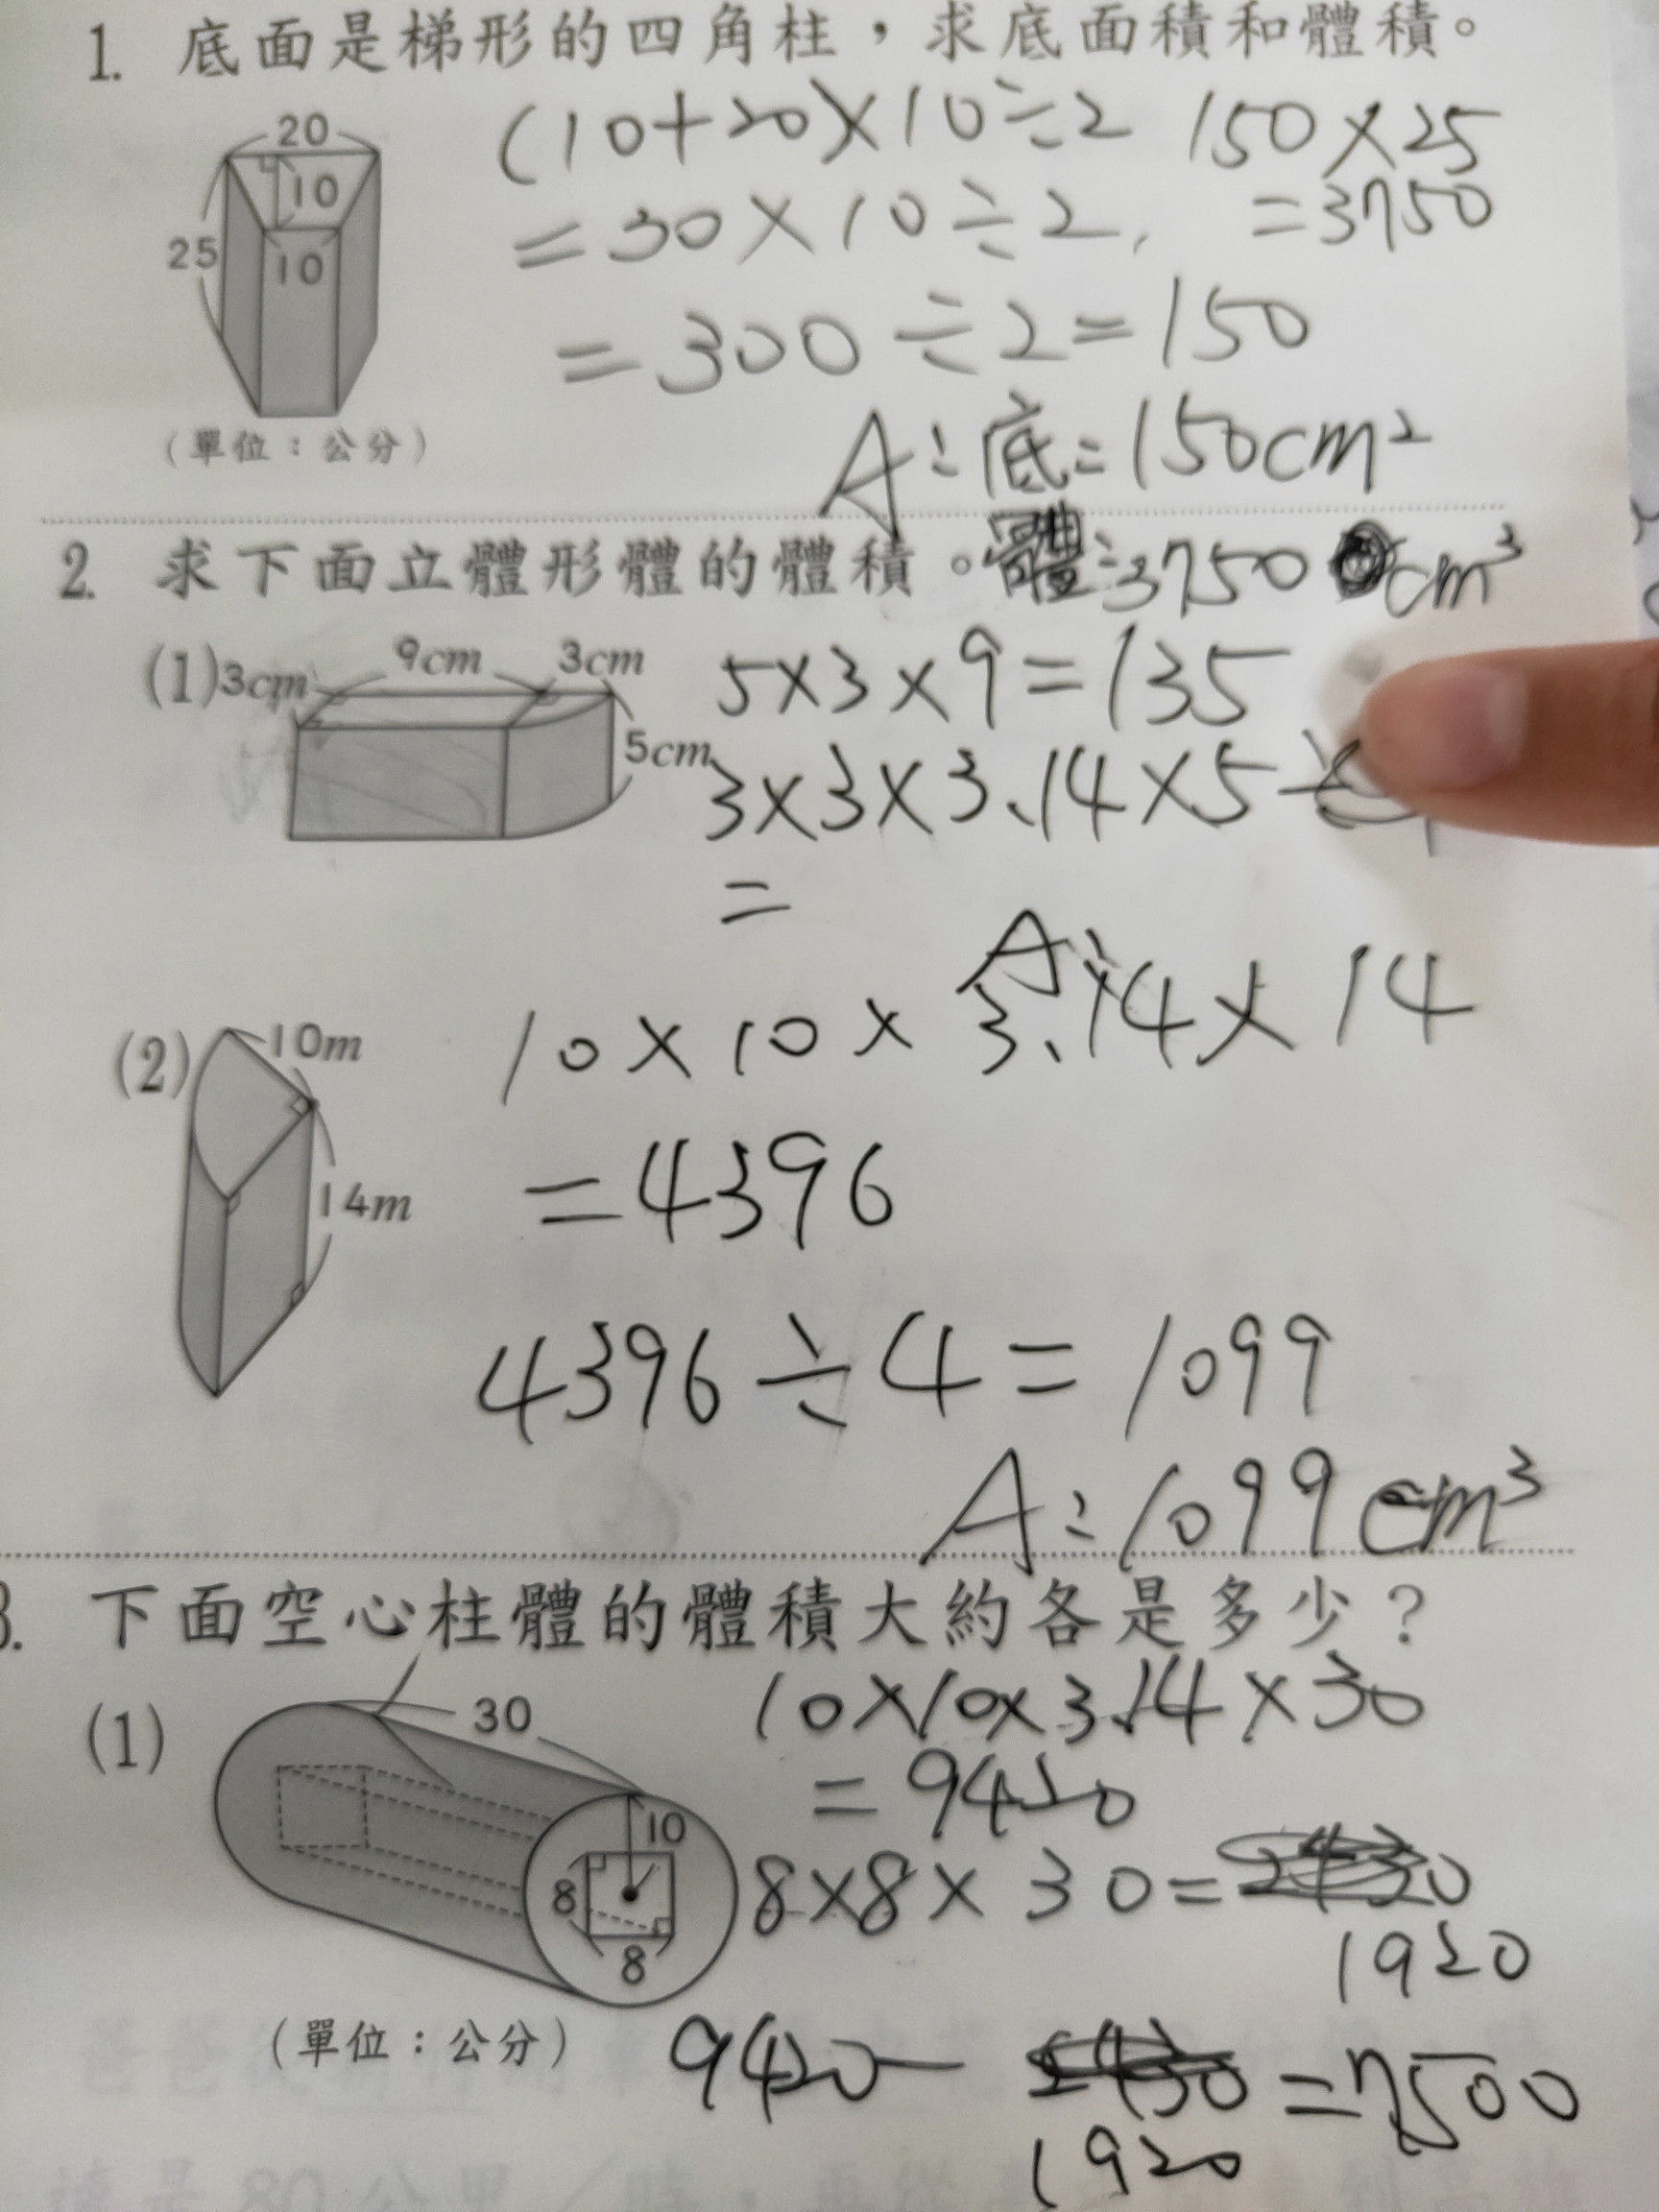 1. 底面是梯形的四角柱，求底面積和體積。
20
10
25
10
(單位：公分)
(10+20)×10÷2 150×25
=30×10÷2 =3750
=300÷2=150
A:底=150cm²
體:3750 cm³
2. 求下面立體形體的體積。
(1) 3cm 9cm 3cm
5cm
5×3×9=135
3×3×3.14×5÷
=
A:
(2) 10m
14m
10×10×3.14×14
=4396
4396÷4=1099
A:1099 m³
3. 下面空心柱體的體積大約各是多少？
(1) 30
10
8
8
(單位：公分)
10×10×3.14×30
=9420
8×8×30=
1920
9420- =7500
1920